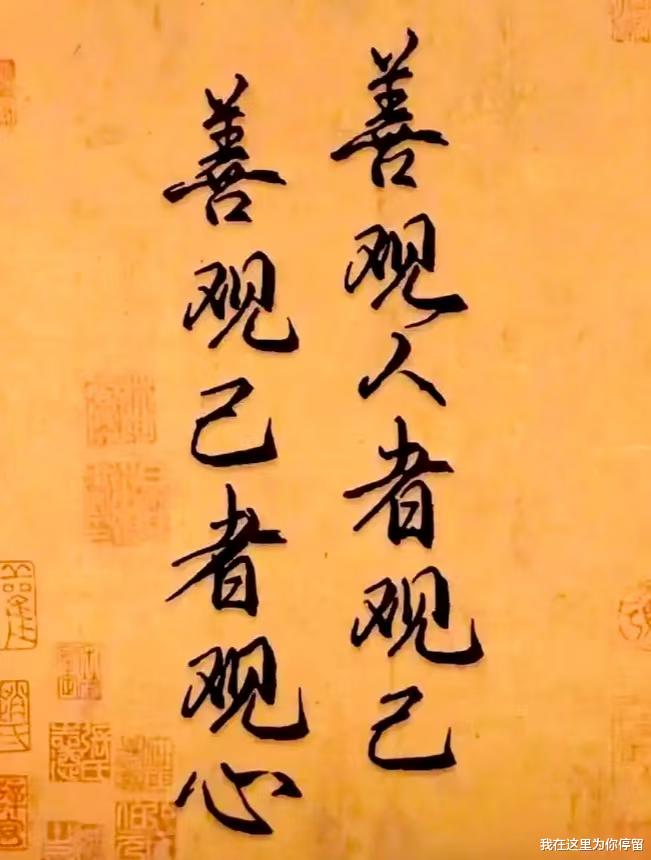 善观人者观己
善观己者观心
我在这里为你停留